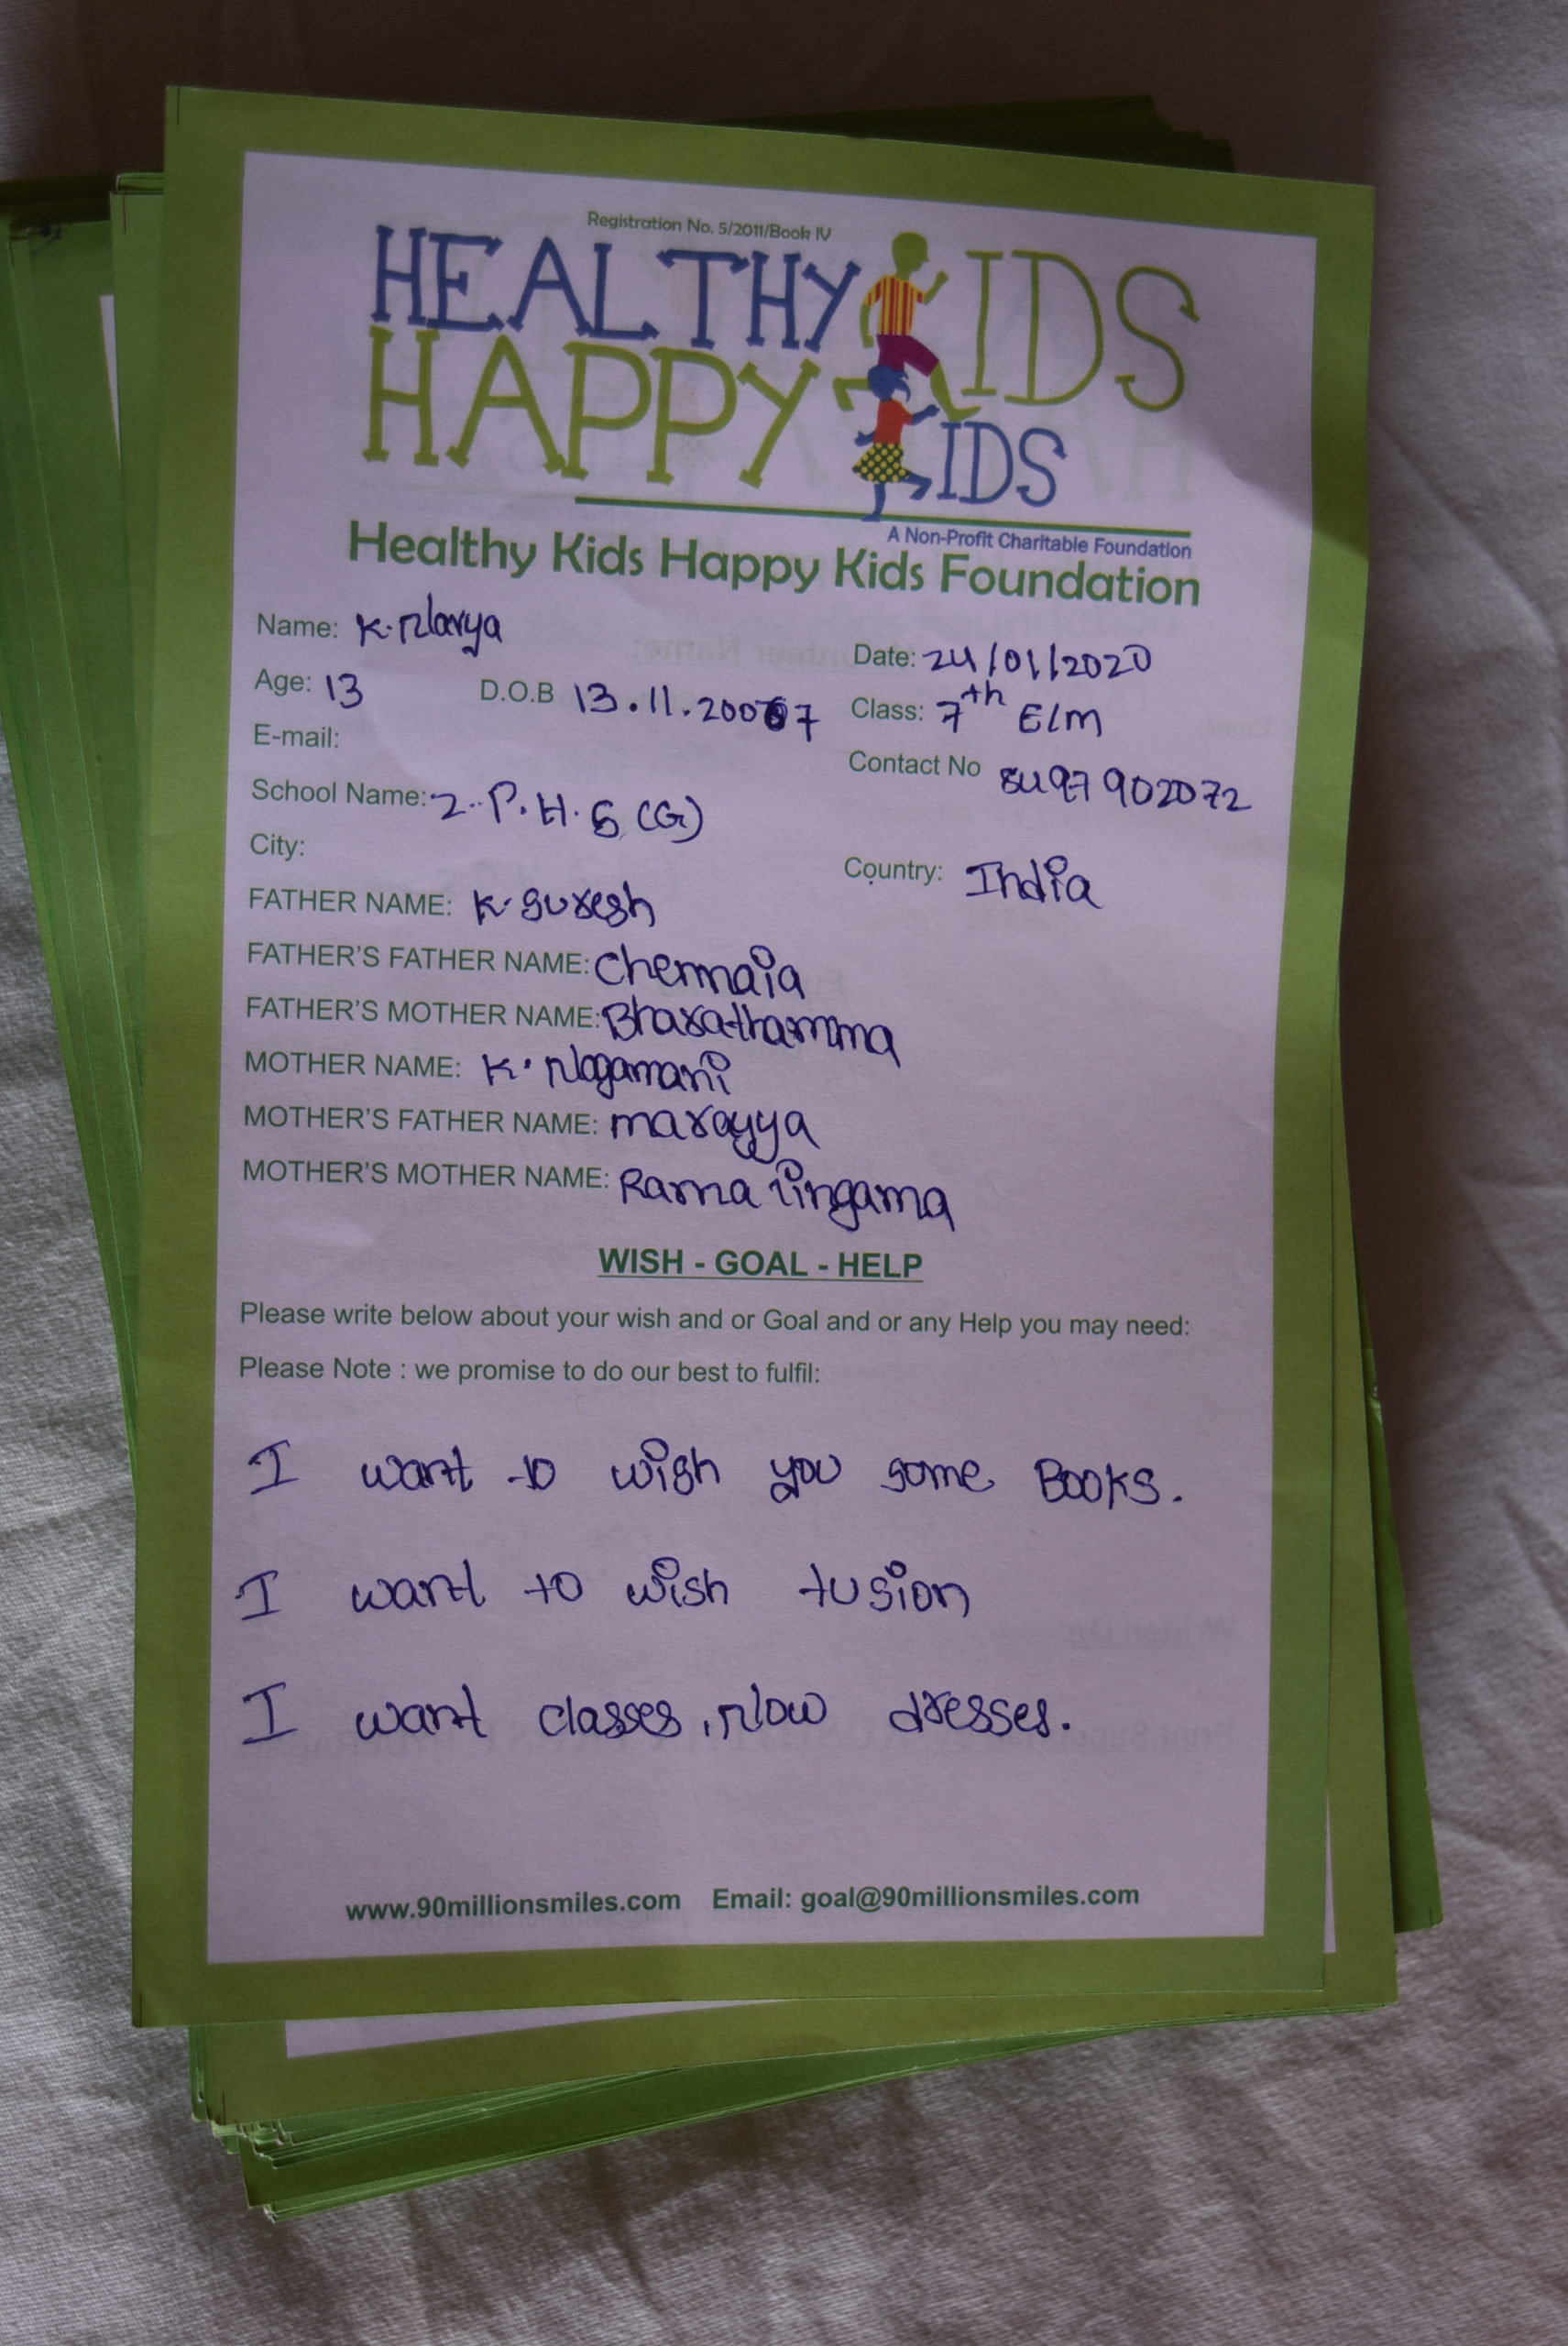 Registration No. 5/2011/Book IV
HEALTHY KIDS
HAPPY KIDS
A Non-Profit Charitable Foundation
Healthy Kids Happy Kids Foundation
Name: K. Navya
Date: 24/01/2020
Age: 13 D.O.B 13.11.2007
Class: 7th E/m
E-mail:
Contact No 8497902072
School Name: Z.P.H.S (G)
City:
Country: India
FATHER NAME: K. Suresh
FATHER'S FATHER NAME: Chennaia
FATHER'S MOTHER NAME: Bharathamma
MOTHER NAME: K. Nagamani
MOTHER'S FATHER NAME: marayya
MOTHER'S MOTHER NAME: Rama lingama
WISH - GOAL - HELP
Please write below about your wish and or Goal and or any Help you may need:
Please Note : we promise to do our best to fulfil:
I want to wish you some Books.
I want to wish tusion
I want classes, Now dresses.
www.90millionsmiles.com Email: goal@90millionsmiles.com